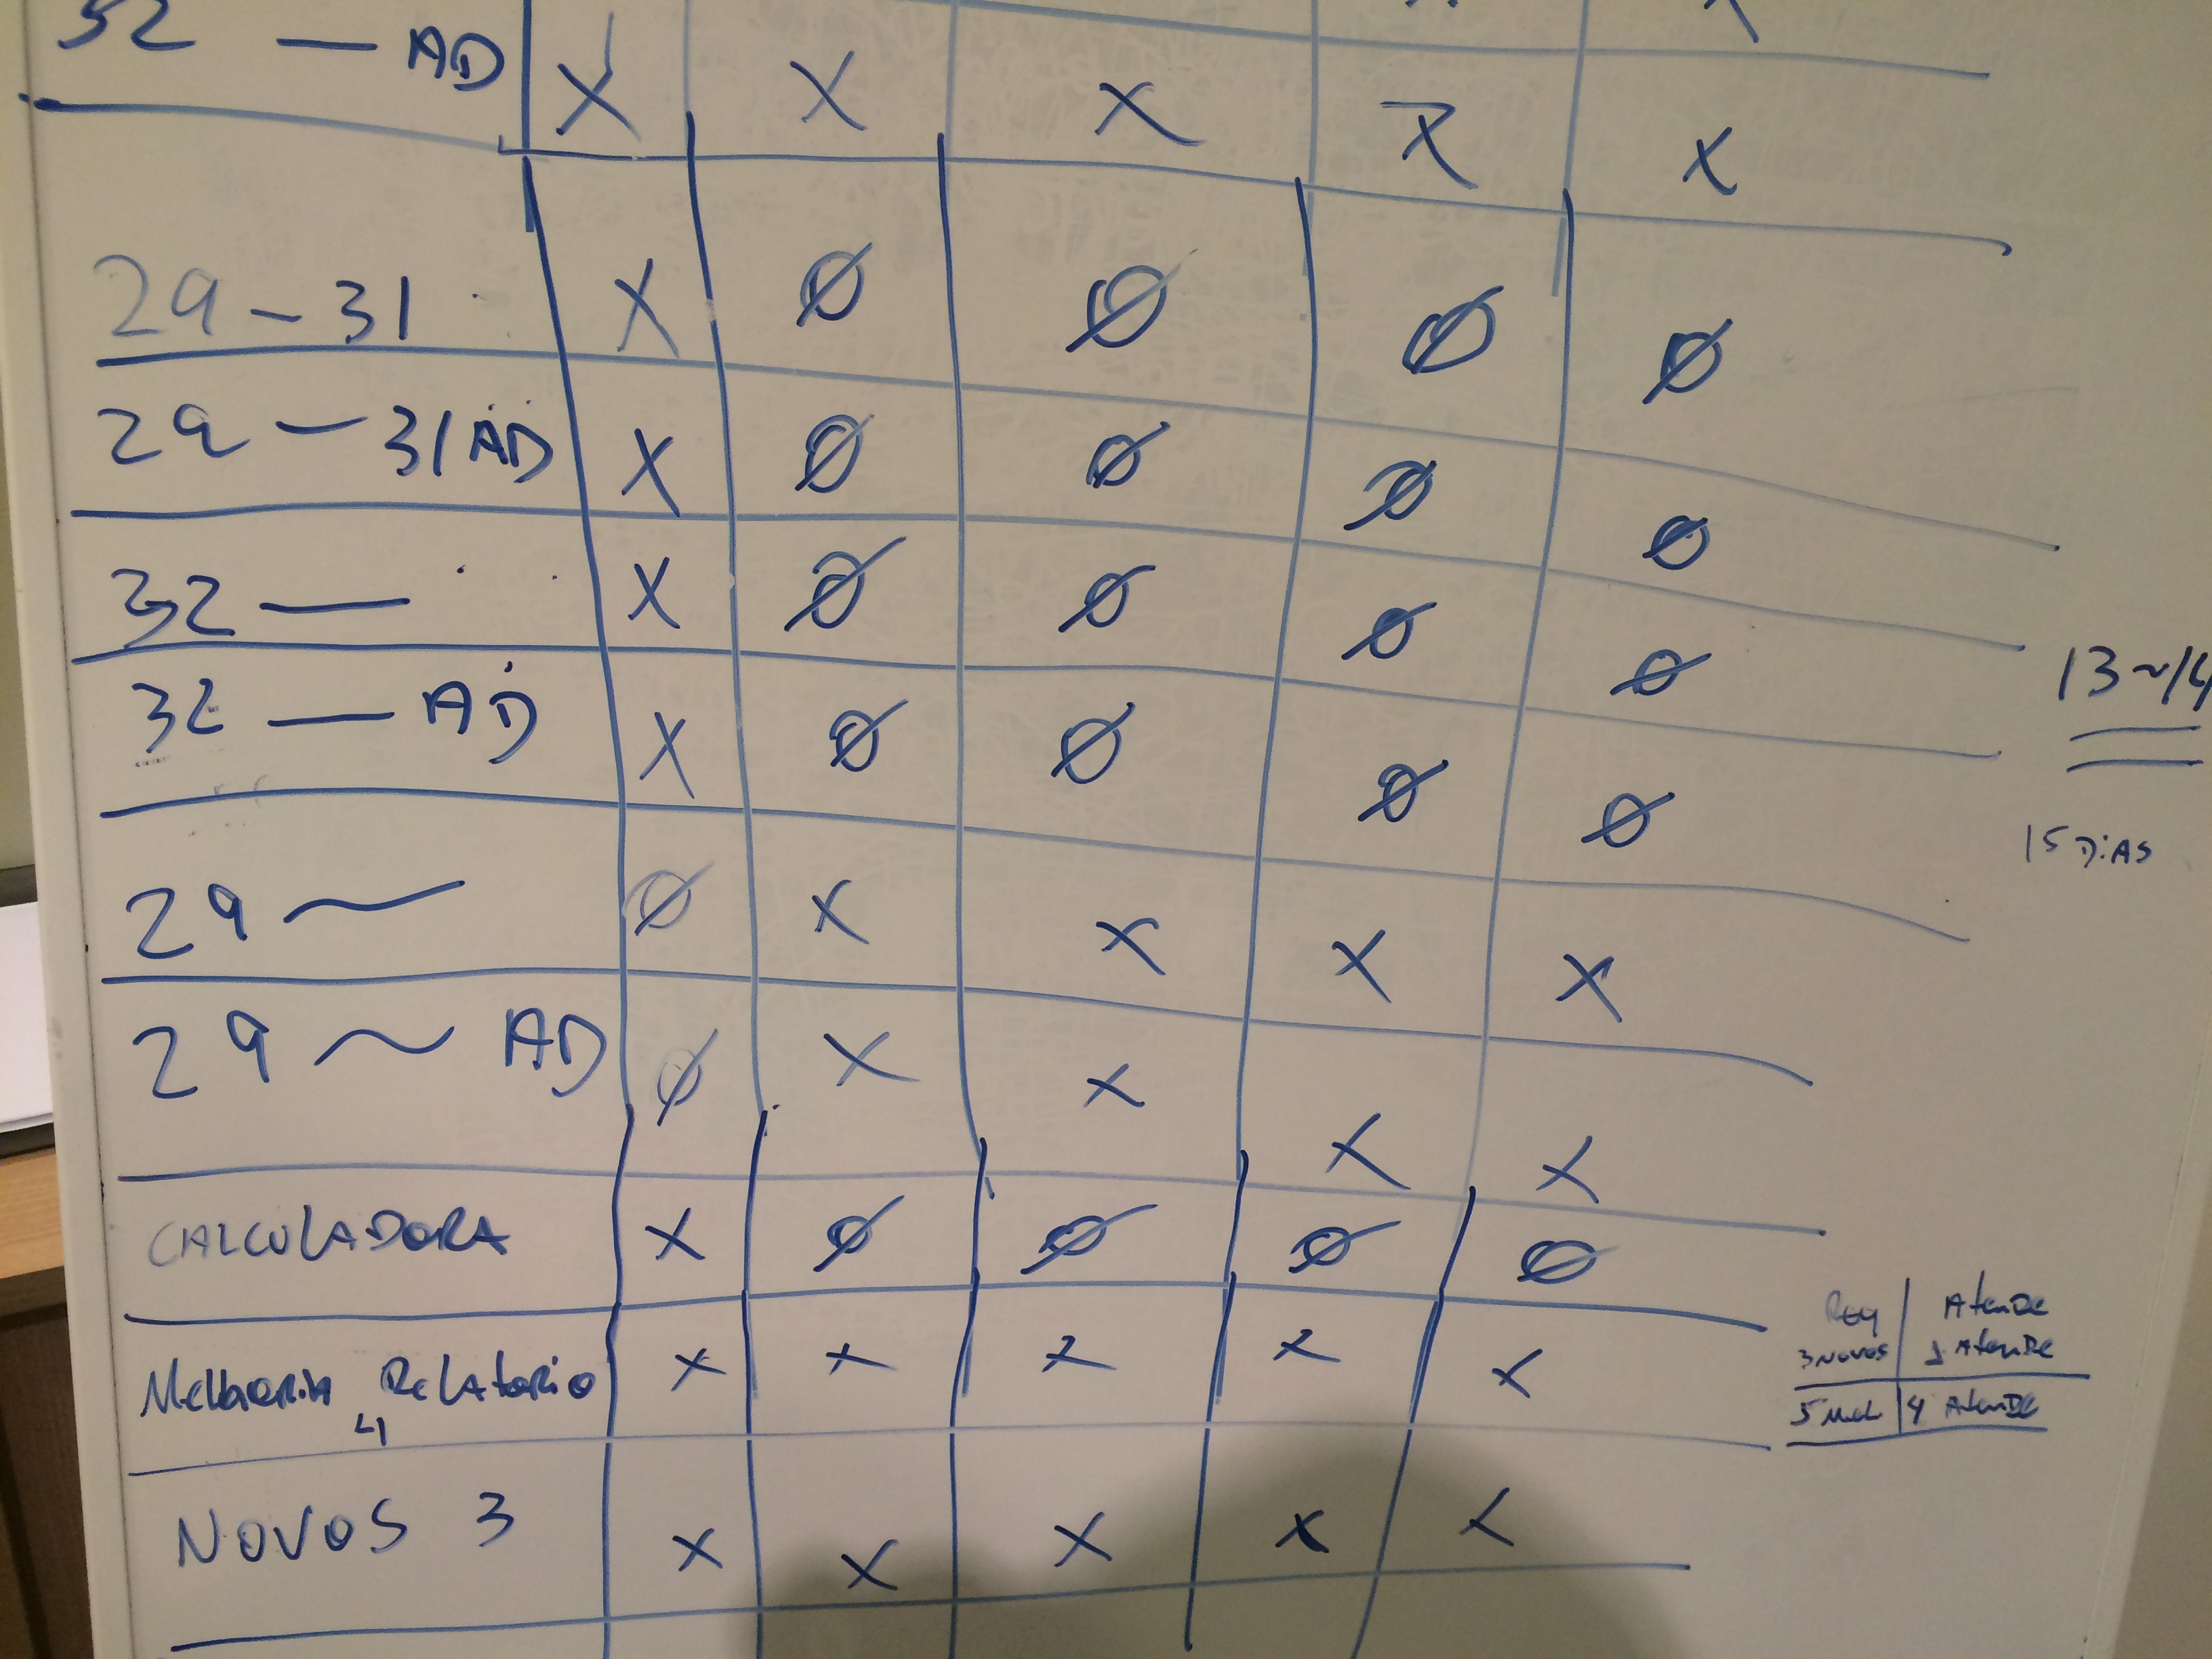 32 — AD X X X X X
29 - 31 X Ø Ø Ø Ø
29 - 31 AD X Ø Ø Ø Ø
32 — X Ø Ø Ø Ø
32 — AD X Ø Ø Ø Ø
29 ~ Ø X X X X
29 ~ AD Ø X X X X
CALCULADORA X Ø Ø Ø Ø
Melhoria Relatorio X X X X X
4
NOVOS 3 X X X X X
13 ~ 14
15 DiAS
Req Atende
3 NOVOS 1 Atende
5 Mel 4 Atende